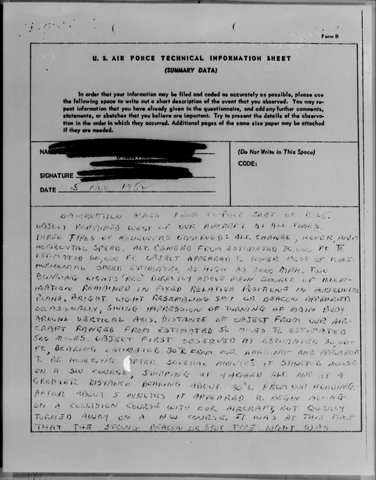 Form B
U. S. AIR FORCE TECHNICAL INFORMATION SHEET
(SUMMARY DATA)
In order that your information may be filed and coded as accurately as possible, please use
the following space to write out a short description of the event that you observed. You may re-
peat information that you have already given in the questionnaire, and add any further comments,
statements, or sketches that you believe are important. Try to present the details of the observa-
tion in the order in which they occurred. Additional pages of the same size paper may be attached
if they are needed.
(Do Not Write in This Space)
CODE:
SIGNATURE
DATE 5
OBSERVATION MADE FROM CO-PILOT SEAT OF
OBJECT REMAINED WEST OF OUR AIRCRAFT AT ALL TIMES.
THREE TYPES OF MANEUVERS OBSERVED: ALT. CHANGE, HOVER, AND
HORIZONTAL SPEED. ALT. RANGED FROM ESTIMATED FT. TO
ESTIMATED FT. OBJECT APPEARED TO HOVER MOST OF TIME.
HORIZONTAL SPEED ESTIMATED AS HIGH AS 3000 MPH. TWO
LIGHTS DIRECTLY ABOVE MAIN SOURCE OF
REMAINED IN FIXED RELATIVE POSITIONS IN HORIZONTAL
PLANE. BRIGHT LIGHT RESEMBLING SPOT OR BEACON APPEARED
OCCASIONALLY, GIVING IMPRESSION OF TURNING OF MAIN BODY
AROUND VERTICAL AXIS. DISTANCE OF OBJECT FROM OUR AIR-
CRAFT RANGED FROM ESTIMATED 50 MILES TO ESTIMATED
MILES. OBJECT FIRST OBSERVED AT ESTIMATED
FT, BEARING ESTIMATED 30°L FROM OUR HEADING AND APPEARED
TO BE HOVERING. AFTER SEVERAL MINUTES IT STARTED MOVING
ON A SW COURSE, STOPPING AT HIGHER ALT. AND AT A
GREATER DISTANCE BEARING ABOUT 30°L FROM OUR HEADING.
AFTER ABOUT 5 MINUTES IT APPEARED TO BEGIN MOVING
ON A COLLISION COURSE WITH OUR AIRCRAFT, BUT QUICKLY
TURNED AWAY ON A NW COURSE. IT WAS AT THIS TIME
THAT THE STRONG BEACON OR SPOT TYPE LIGHT WAS